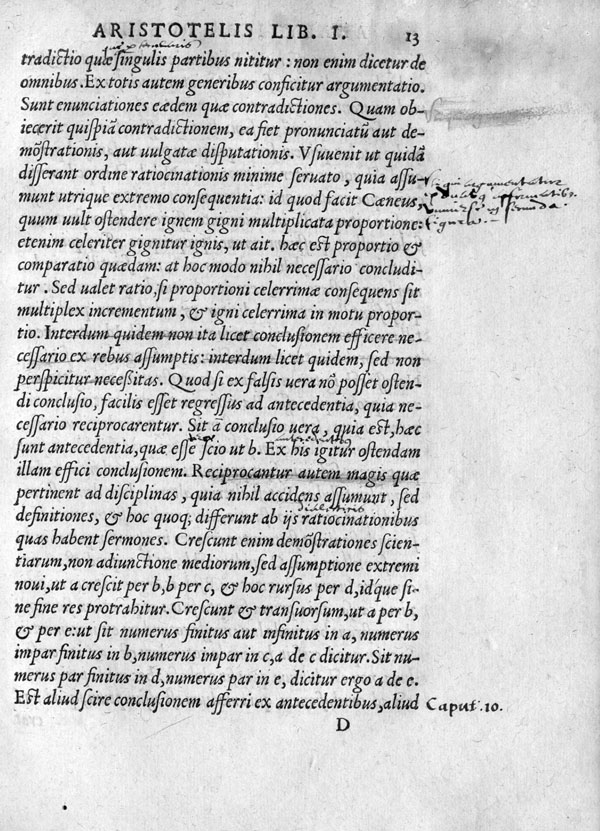 ARISTOTELIS LIB. I. 13
tradictio quæ singulis partibus nititur : non enim dicetur de
omnibus. Ex totis autem generibus conficitur argumentatio.
Sunt enunciationes eædem quæ contradictiones. Quam ob-
iecerit quispiã contradictionem, ea fiet pronunciatũ aut de-
mõstrationis, aut vulgatæ disputationis. Vsuuenit ut quidã
disserant ordine ratiocinationis minime seruato, quia assu-
munt utrique extremo consequentia: id quod facit Cæneus,
quum uult ostendere ignem gigni multiplicata proportione:
etenim celeriter gignitur ignis, ut ait. hæc est proportio &
comparatio quædam: at hoc modo nihil necessario concludi-
tur. Sed ualet ratio, si proportioni celerrimæ consequens sit
multiplex incrementum, & igni celerrima in motu propor-
tio. Interdum quidem non ita licet conclusionem efficere ne-
cessario ex rebus assumptis: interdum licet quidem, sed non
perspicitur necessitas. Quod si ex falsis uera nõ posset osten-
di conclusio, facilis esset regressus ad antecedentia, quia ne-
cessario reciprocarentur. Sit ã conclusio uera, quia est, hæc
sunt antecedentia, quæ esse scio ut b. Ex his igitur ostendam
illam effici conclusionem. Reciprocantur autem magis quæ
pertinent ad disciplinas, quia nihil accidens assumunt, sed
definitiones, & hoc quoq; differunt ab ijs ratiocinationibus
quas habent sermones. Crescunt enim demõstrationes scien-
tiarum, non adiunctione mediorum, sed assumptione extremi
noui, ut a crescit per b, b per c, & hoc rursus per d, idque si-
ne fine res protrahitur. Crescunt & transuorsum, ut a per b,
& per e: ut sit numerus finitus aut infinitus in a, numerus
impar finitus in b, numerus impar in c, a de c dicitur. Sit nu-
merus par finitus in d, numerus par in e, dicitur ergo a de e.
Est aliud scire conclusionem afferri ex antecedentibus, aliud
Caput. 10.
D